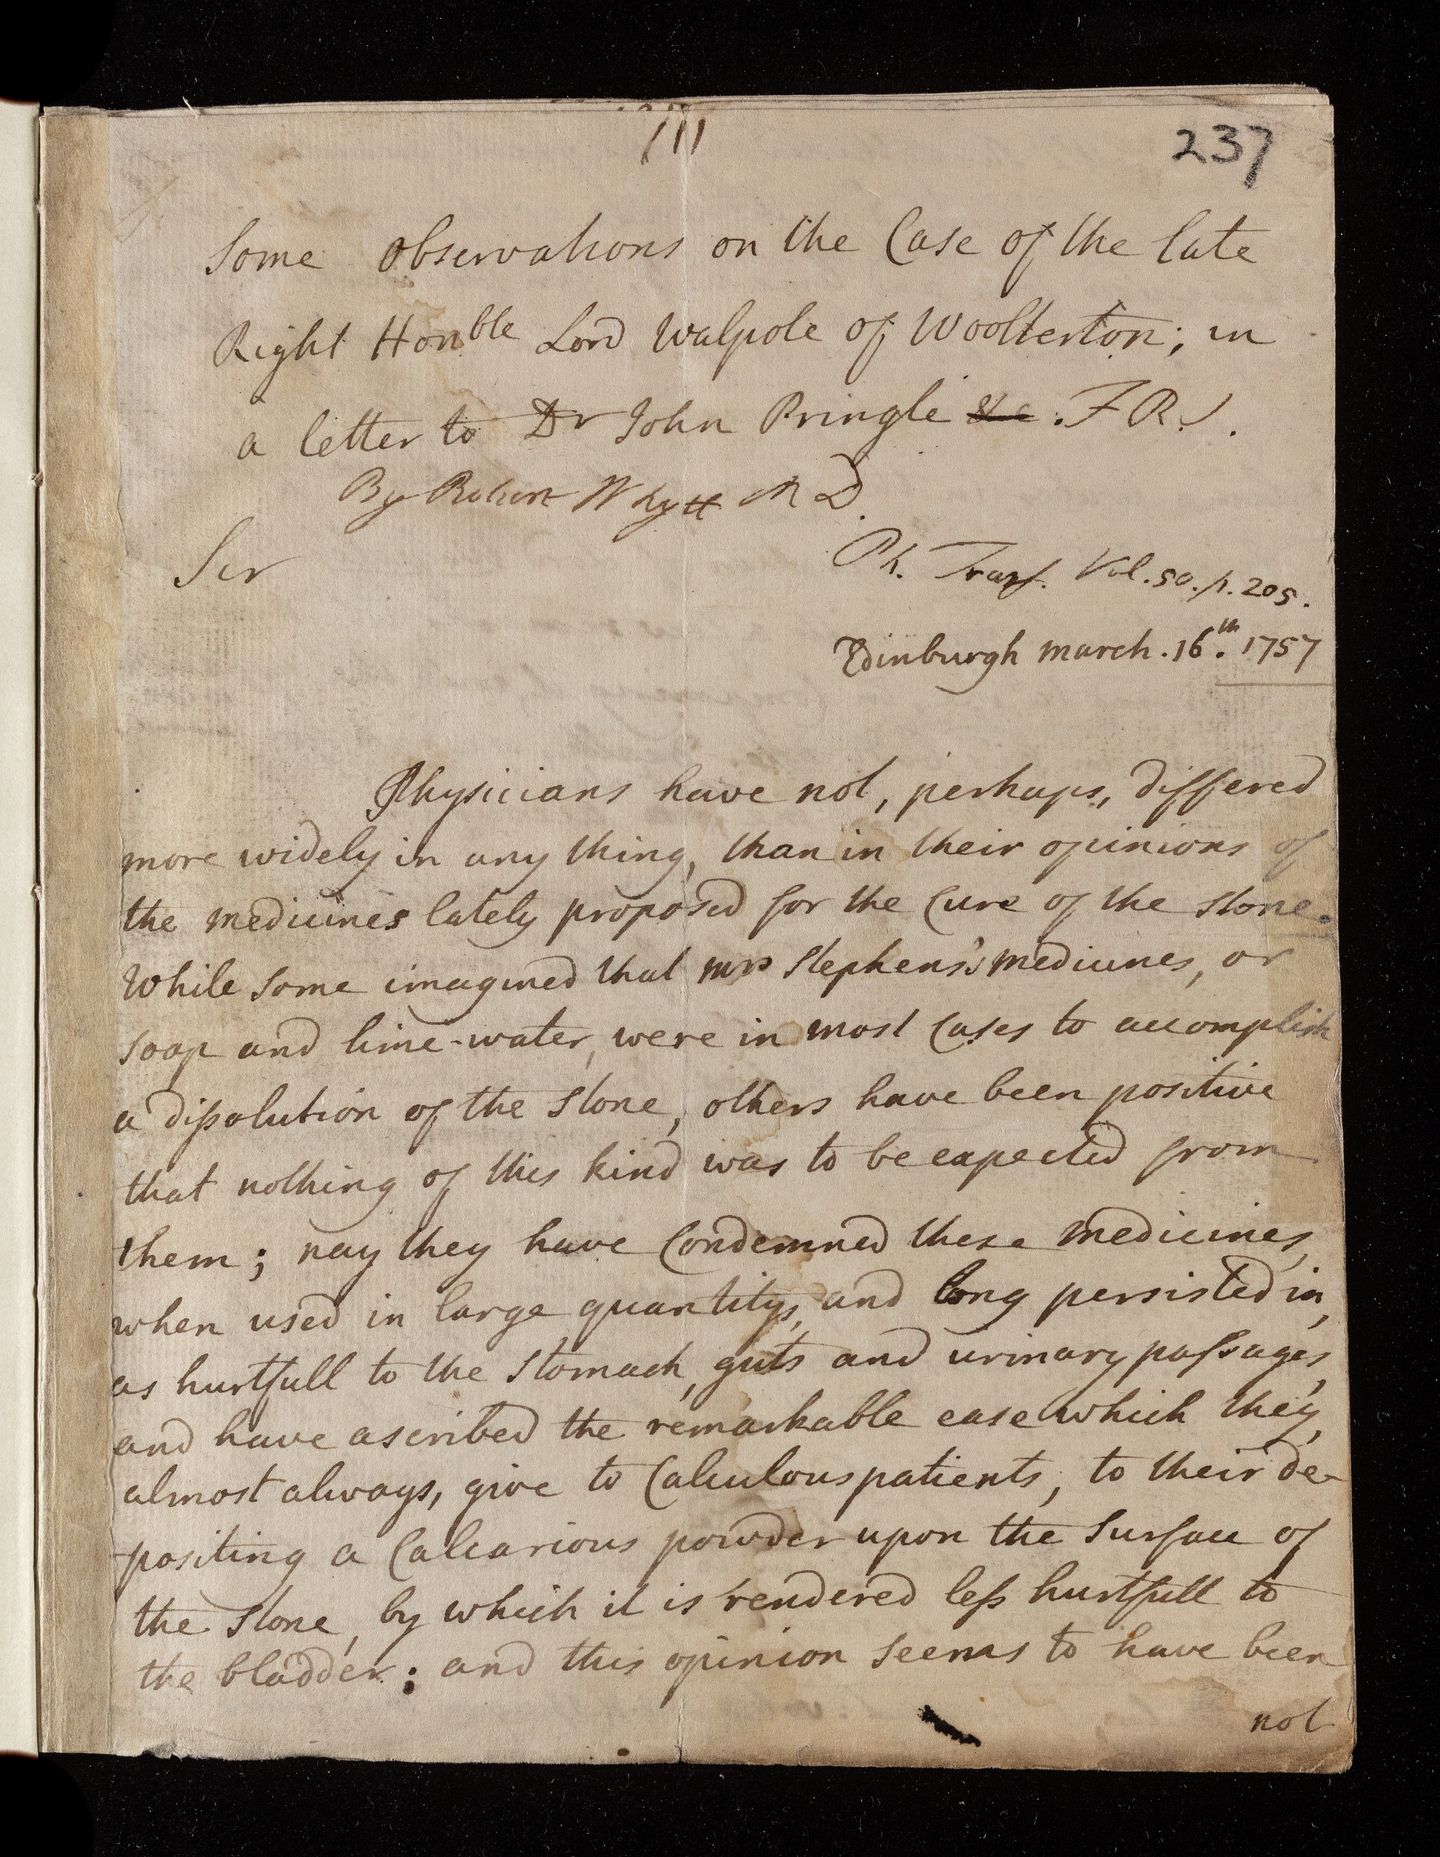 111
237
Some Observations on the Case of the late
Right Honble Lord Walpole of Woolterton; in
a letter to Dr John Pringle &c. F R. S.
By Robert Whytt M D.
Ph. Trans. Vol. 50. p. 205.
Sir
Edinburgh march. 16th. 1757
Physicians have not, perhaps, differed
more widely in any thing, than in their opinions of
the medicines lately proposed for the Cure of the stone.
While some imagined that mrs Stephens's medicines, or
soap and lime-water, were in most Cases to accomplish
a dissolution of the Stone, others have been positive
that nothing of this kind was to be expected from
them; nay they have Condemned these medicines,
when used in large quantitys, and long persisted in,
as hurtfull to the Stomach, guts and urinary passages,
and have ascribed the remarkable ease which they,
almost always, give to Calculous patients, to their de-
positing a Calcarious powder upon the Surface of
the Stone, by which it is rendered less hurtfull to
the bladder; and this opinion seems to have been
not